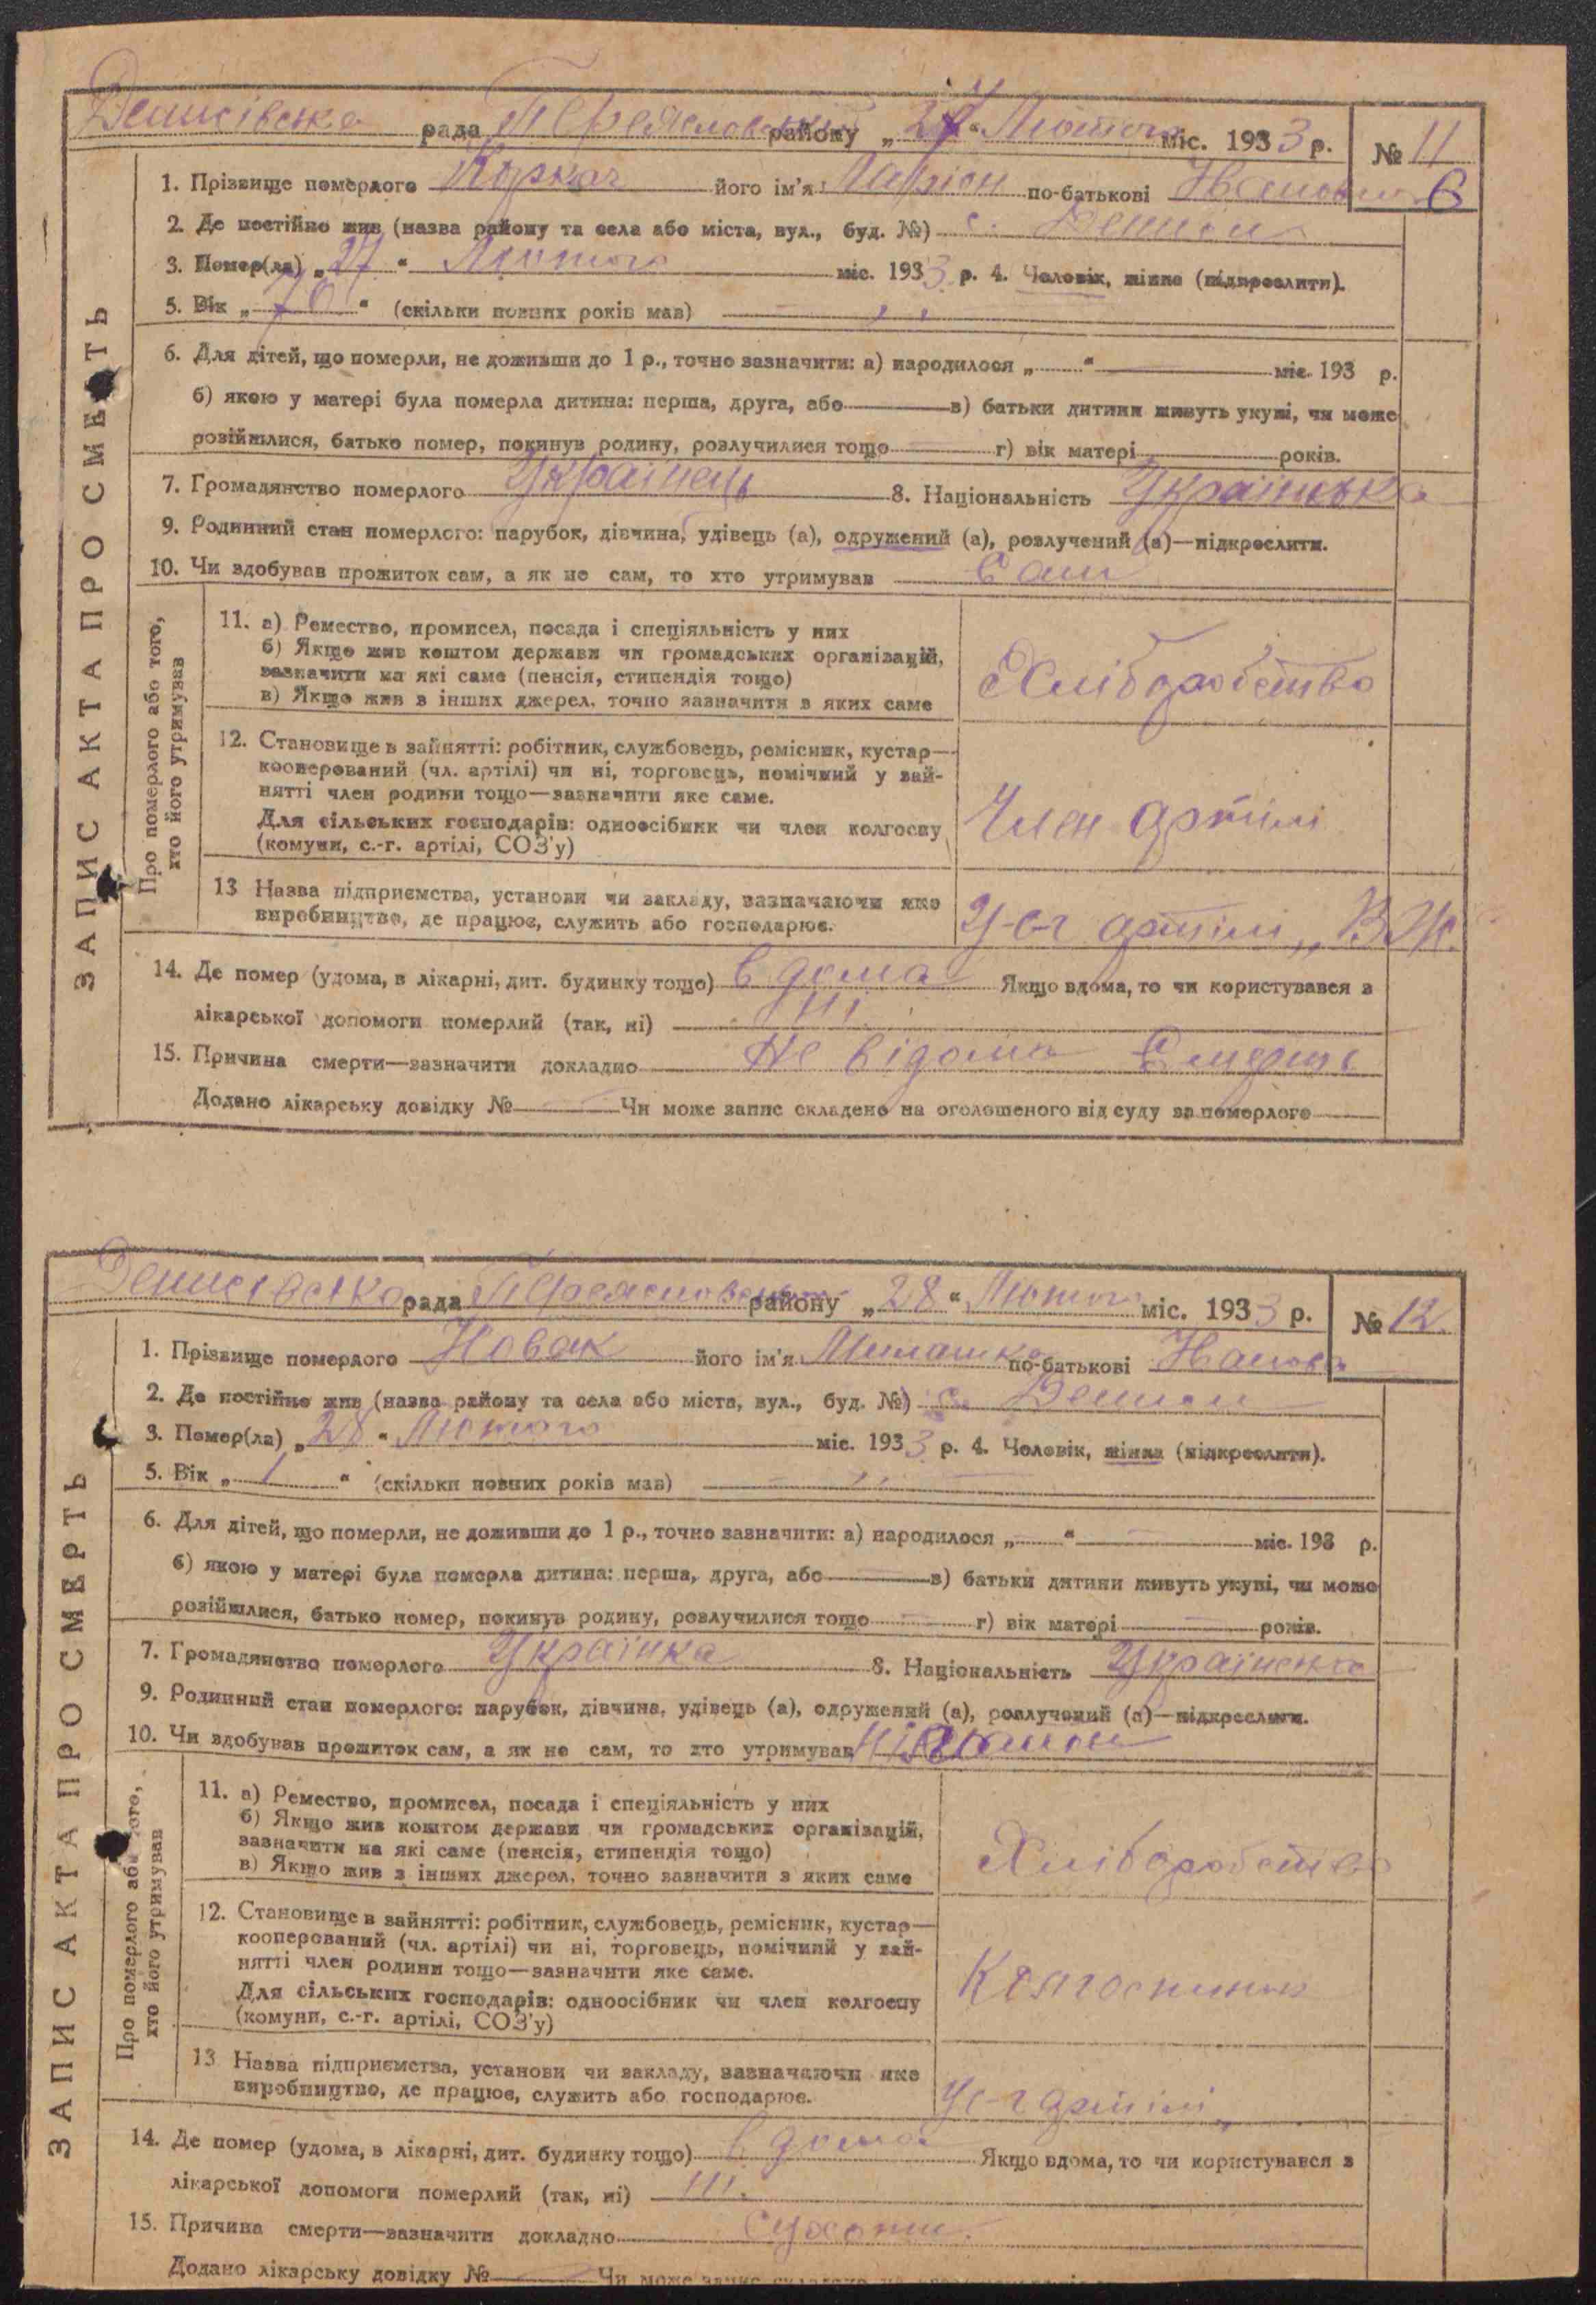 Денисівська рада Переяславський району „27“ Лютого міс. 1933 р. № 11
1. Прізвище померлого Коркач його ім'я Ларіон по-батькові Іванович 6
2. Де постійно жив (назва району та села або міста, вул., буд. №) с. Дениси
3. Помер(ла) „27“ Лютого міс. 1933 р. 4. Чоловік, жінка (підкреслити).
5. Вік „70“ (скільки повних років мав)
6. Для дітей, що померли, не доживши до 1 р., точно зазначити: а) народилося „ “ міс. 193 р.
б) якою у матері була померла дитина: перша, друга, або в) батьки дитини живуть укупі, чи може
розійшлися, батько помер, покинув родину, розлучилися тощо г) вік матері років.
7. Громадянство померлого Українець 8. Національність Українська
9. Родинний стан померлого: парубок, дівчина, удівець (а), одружений (а), розлучений (а)—підкреслити.
10. Чи здобував прожиток сам, а як не сам, то хто утримував Сам
ЗАПИС АКТА ПРО СМЕРТЬ
Про померлого або того, хто його утримував
11. а) Ремество, промисел, посада і спеціяльність у них
б) Якщо жив коштом держави чи громадських організацій,
зазначити на які саме (пенсія, стипендія тощо)
в) Якщо жив з інших джерел, точно зазначити з яких саме
Хліборобство
12. Становище в зайнятті: робітник, службовець, ремісник, кустар—
кооперований (чл. артілі) чи ні, торговець, помічний у зай-
нятті член родини тощо—зазначити яке саме.
Для сільських господарів: одноосібник чи член колгоспу
(комуни, с.-г. артілі, СОЗ'у)
Член артілі
13 Назва підприємства, установи чи закладу, зазначаючи яке
виробництво, де працює, служить або господарює.
У с-г артілі „В.Ж.
14. Де помер (удома, в лікарні, дит. будинку тощо) в дома Якщо вдома, то чи користувався з
лікарської допомоги померлий (так, ні) ні
15. Причина смерти—зазначити докладно Не відома Смерть
Додано лікарську довідку № Чи може запис складено на оголошеного від суду за померлого
Денисівська рада Переяславський району „28“ Лютого міс. 1933 р. № 12
1. Прізвище померлого Новак його ім'я Милашка по-батькові Іванова
2. Де постійно жив (назва району та села або міста, вул., буд. №) с. Дениси
3. Помер(ла) „28“ Лютого міс. 1933 р. 4. Чоловік, жінка (підкреслити).
5. Вік „1“ (скільки повних років мав)
6. Для дітей, що померли, не доживши до 1 р., точно зазначити: а) народилося „ “ міс. 193 р.
б) якою у матері була померла дитина: перша, друга, або в) батьки дитини живуть укупі, чи може
розійшлися, батько помер, покинув родину, розлучилися тощо г) вік матері років.
7. Громадянство померлого Українка 8. Національність Українська
9. Родинний стан померлого: парубок, дівчина, удівець (а), одружений (а), розлучений (а)—підкреслити.
10. Чи здобував прожиток сам, а як не сам, то хто утримував
ЗАПИС АКТА ПРО СМЕРТЬ
Про померлого або того, хто його утримував
11. а) Ремество, промисел, посада і спеціяльність у них
б) Якщо жив коштом держави чи громадських організацій,
зазначити на які саме (пенсія, стипендія тощо)
в) Якщо жив з інших джерел, точно зазначити з яких саме
Хліборобство
12. Становище в зайнятті: робітник, службовець, ремісник, кустар—
кооперований (чл. артілі) чи ні, торговець, помічний у зай-
нятті член родини тощо—зазначити яке саме.
Для сільських господарів: одноосібник чи член колгоспу
(комуни, с.-г. артілі, СОЗ'у)
Колгоспник
13 Назва підприємства, установи чи закладу, зазначаючи яке
виробництво, де працює, служить або господарює.
У с-г артілі „
14. Де помер (удома, в лікарні, дит. будинку тощо) в дома Якщо вдома, то чи користувався з
лікарської допомоги померлий (так, ні) ні.
15. Причина смерти—зазначити докладно Сухоти.
Додано лікарську довідку № Чи може запис складено